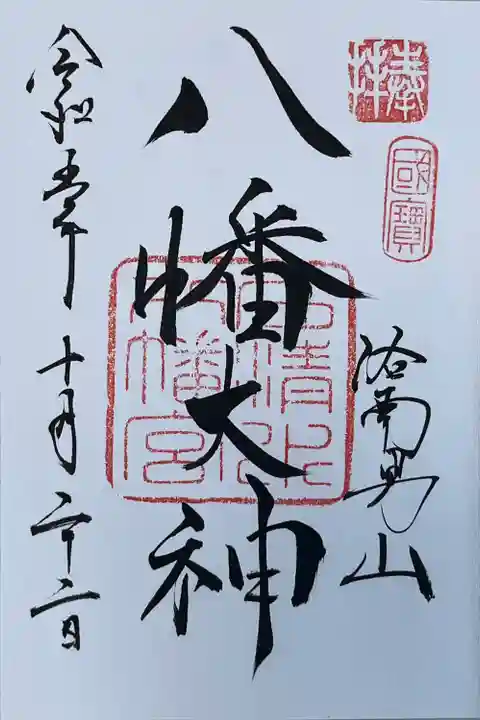 奉拝
國寶
洛南男山
八幡大神
石清水
八幡宮
令和五年十月二十二日